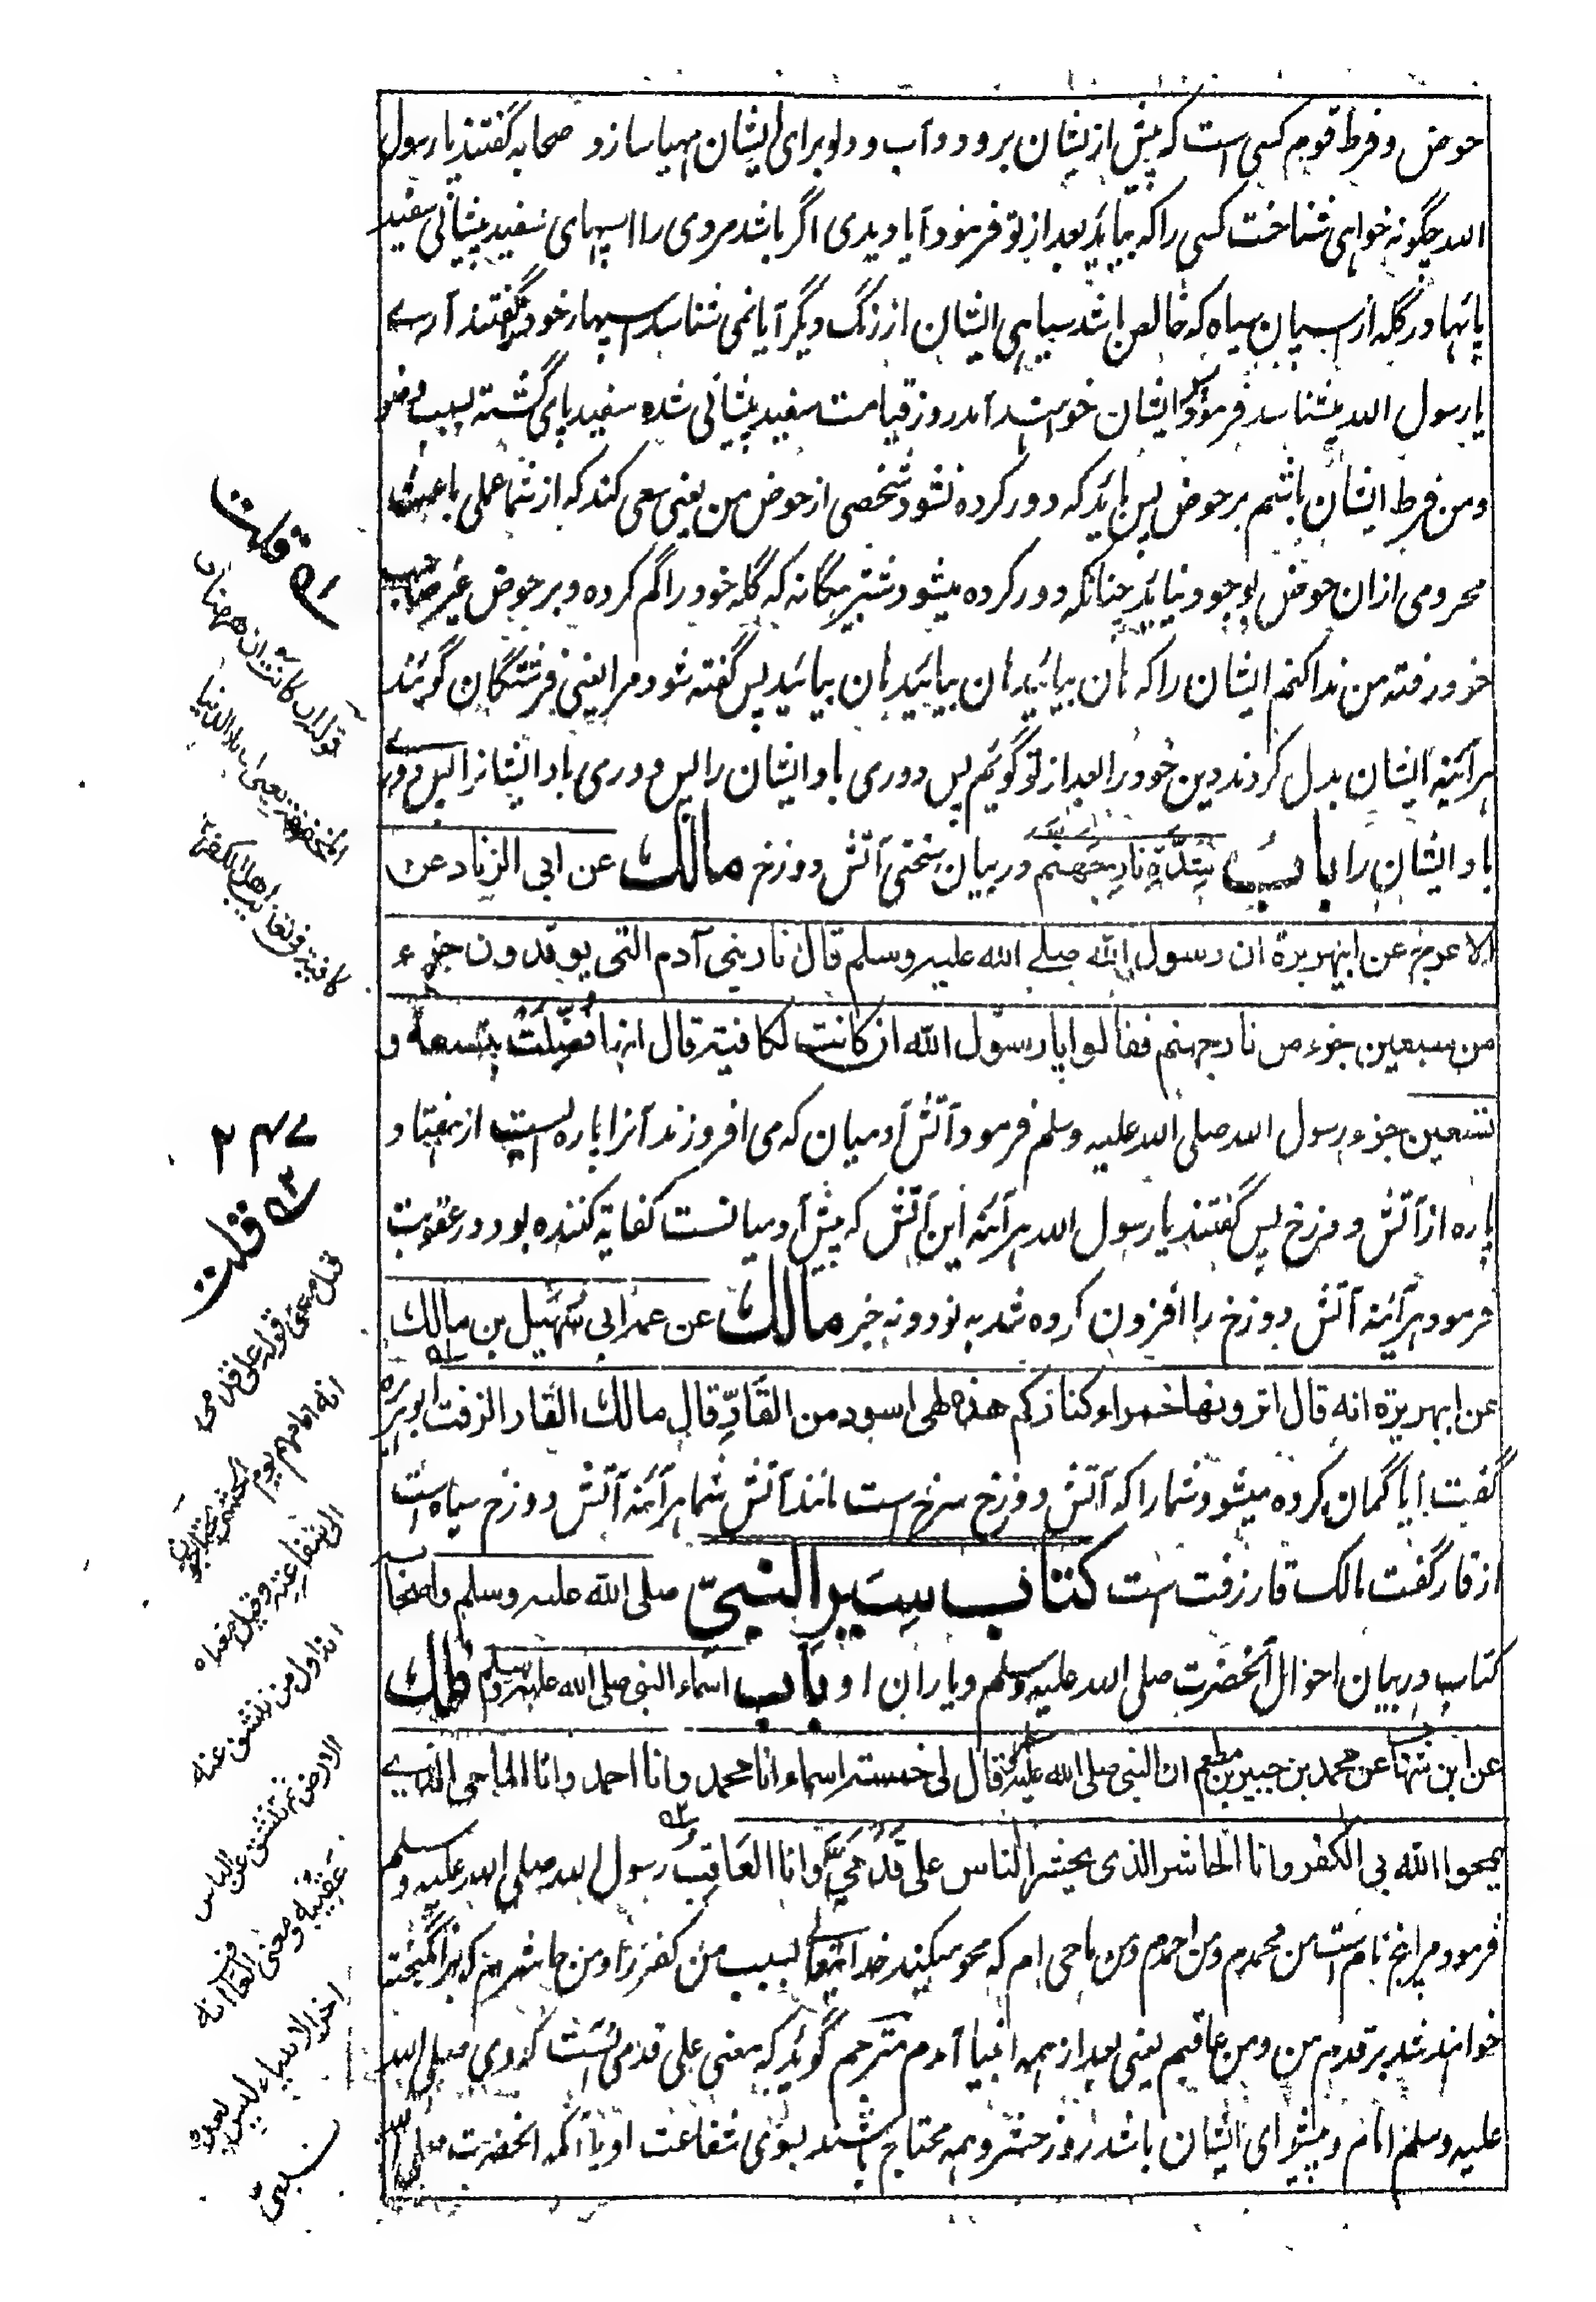 حوض و فرط قوم کسی است که پیش از یشان برود و آب و دلو برای ایشان مهیا سازد صحابه گفتند یا رسول
الله چگونه خواهی شناخت کسی را که بیاید بعد از تو فرمود آیا دیدی اگر باشد مردی را اسپهای سفید پیشانی سفید
پائها در گله از اسپان سیاه که خالص باشد سیاهی ایشان از رنگ دیگر آیا نمی شناسد اسپهار خود گفتند آرے
یا رسول الله بشناسد فرمود که ایشان خواهند آمد روز قیامت سفید پیشانی شده سفید پای گشته بسبب وضو
و من فرط ایشان باشم بر حوض پس باید که دور کرده نشود شخصی از حوض من یعنی سعی کند که از شما عملی باعث
محرومی ازان حوض بوجود نیاید چنانکه دور کرده میشود شتر بیگانه که گله خود را گم کرده و بر حوض غیر صاحب
خود رفته من ندا کنم ایشان را که هان بیائید هان بیائید هان بیائید پس گفته شود مرا یعنی فرشتگان گویند
هرآئینه ایشان بدل کردند دین خود را بعد از تو گویم پس دوری باد ایشان را پس دوری باد ایشانرا پس دورے
باد ایشان را باب شدة نار جهنم در بیان سختی آتش دوزخ مالك عن ابی الزناد عن
الاعرج عن ابیهریرة ان رسول الله صلے الله علیه وسلم قال نار بنی آدم التی یوقدون جزء
من سبعین جزء من نار جهنم فقالوا یا رسول الله ان کانت لکافیة قال انها فضلت بتسعة و
تسعین جزء رسول الله صلی الله علیه وسلم فرمود آتش آدمیان که می افروزند آنرا پاره ایست از هفتاد
پاره از آتش دوزخ پس گفتند یا رسول الله هرآئنه این آتش که پیش آدمیانست کفایة کننده بود در عقوبت
فرمود هرآئنه آتش دوزخ را افزون کرده شد به نود و نه جزء مالك عن عمه ابی سهیل بن مالك
عن ابیهریرة انه قال اترونها حمراء کنارکم هذه لهی اسود من القار قال مالك القار الزفت ابوهریره
گفت آیا گمان کرده میشود شما را که آتش دوزخ سرخ است مانند آتش شما هرآئنه آتش دوزخ سیاه است
از قار گفت مالک قار زفت است کتاب سیر النبی صلی الله علیه وسلم واصحابه
کتاب در بیان احوال آنحضرت صلی الله علیه وسلم و یاران او باب اسماء النبی صلی الله علیه وسلم مالك
عن ابن شهاب عن محمد بن جبیر بن مطعم ان النبی صلی الله علیه وسلم قال لی خمسة اسماء انا محمد وانا احمد وانا الماحی الذے
یمحوا الله بی الکفر وانا الحاشر الذی یحشر الناس علی قدمی وانا العاقب رسول الله صلی الله علیه وسلم
فرمود مرا پنج نام است من محمدم و من احمدم و من ماحی ام که محو میکند خدایتعالے بسبب من کفر را و من حاشرم که برانگیخته
خواهند شد بر قدم من و من عاقبم یعنی بعد از همه انبیا آمدم مترجم گوید که معنی علی قدمی آنست که وی صلی الله
علیه وسلم امام و پیشوای ایشان باشد روز حشر و همه محتاج باشند بسوی شفاعت او یا آنکه آنحضرت صلی الله
له قلت
قوله ان کانت ان ههنا
المخففة یعنی نار الدنیا
کافیة فی تعذیب اهل الکفر
٢
له قلت
قیل معنی قوله علی قدمی
انه امامهم یوم
الی شفاعته وقیل معناه
انه اول من تنشق عنه
الارض ثم تنشق عن الناس
عقیبه ومعنی العاقب انه
اخر الانبیاء لیس بعده
نبی